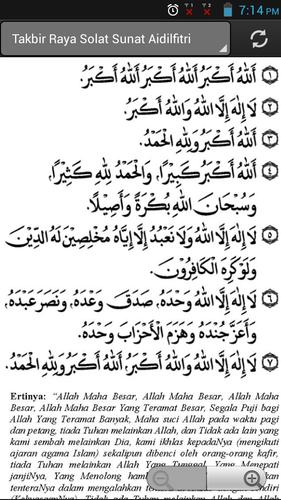 7:14 PM
Takbir Raya Solat Sunat Aidilfitri
١ اَللهُ أَكْبَرُ اَللهُ أَكْبَرُ اَللهُ أَكْبَرُ.
٢ لَا إِلٰهَ إِلَّا اللهُ وَاللهُ أَكْبَرُ.
٣ اَللهُ أَكْبَرُ وَلِلّٰهِ الْحَمْدُ.
٤ اَللهُ أَكْبَرُ كَبِيْرًا، وَالْحَمْدُ لِلّٰهِ كَثِيْرًا،
وَسُبْحَانَ اللهِ بُكْرَةً وَأَصِيْلًا.
٥ لَا إِلٰهَ إِلَّا اللهُ وَلَا نَعْبُدُ إِلَّا إِيَّاهُ مُخْلِصِيْنَ لَهُ الدِّيْنَ
وَلَوْ كَرِهَ الْكَافِرُوْنَ.
٦ لَا إِلٰهَ إِلَّا اللهُ وَحْدَهُ، صَدَقَ وَعْدَهُ، وَنَصَرَ عَبْدَهُ،
وَأَعَزَّ جُنْدَهُ وَهَزَمَ الْأَحْزَابَ وَحْدَهُ.
٧ لَا إِلٰهَ إِلَّا اللهُ وَاللهُ أَكْبَرُ، اَللهُ أَكْبَرُ وَلِلّٰهِ الْحَمْدُ.
Ertinya: "Allah Maha Besar, Allah Maha Besar, Allah Maha
Besar, Allah Maha Besar Yang Teramat Besar, Segala Puji bagi
Allah Yang Teramat Banyak, Maha suci Allah pada waktu pagi
dan petang, tiada Tuhan melainkan Allah, dan Tidak ada lain yang
kami sembah melainkan Dia, kami ikhlas kepadaNya (mengikuti
ajaran agama Islam) sekalipun dibenci oleh orang-orang kafir,
tiada Tuhan melainkan Allah Yang Tunggal, Yang Menepati
janjiNya, Yang Menolong
tenteraNya dalam mengalahkan